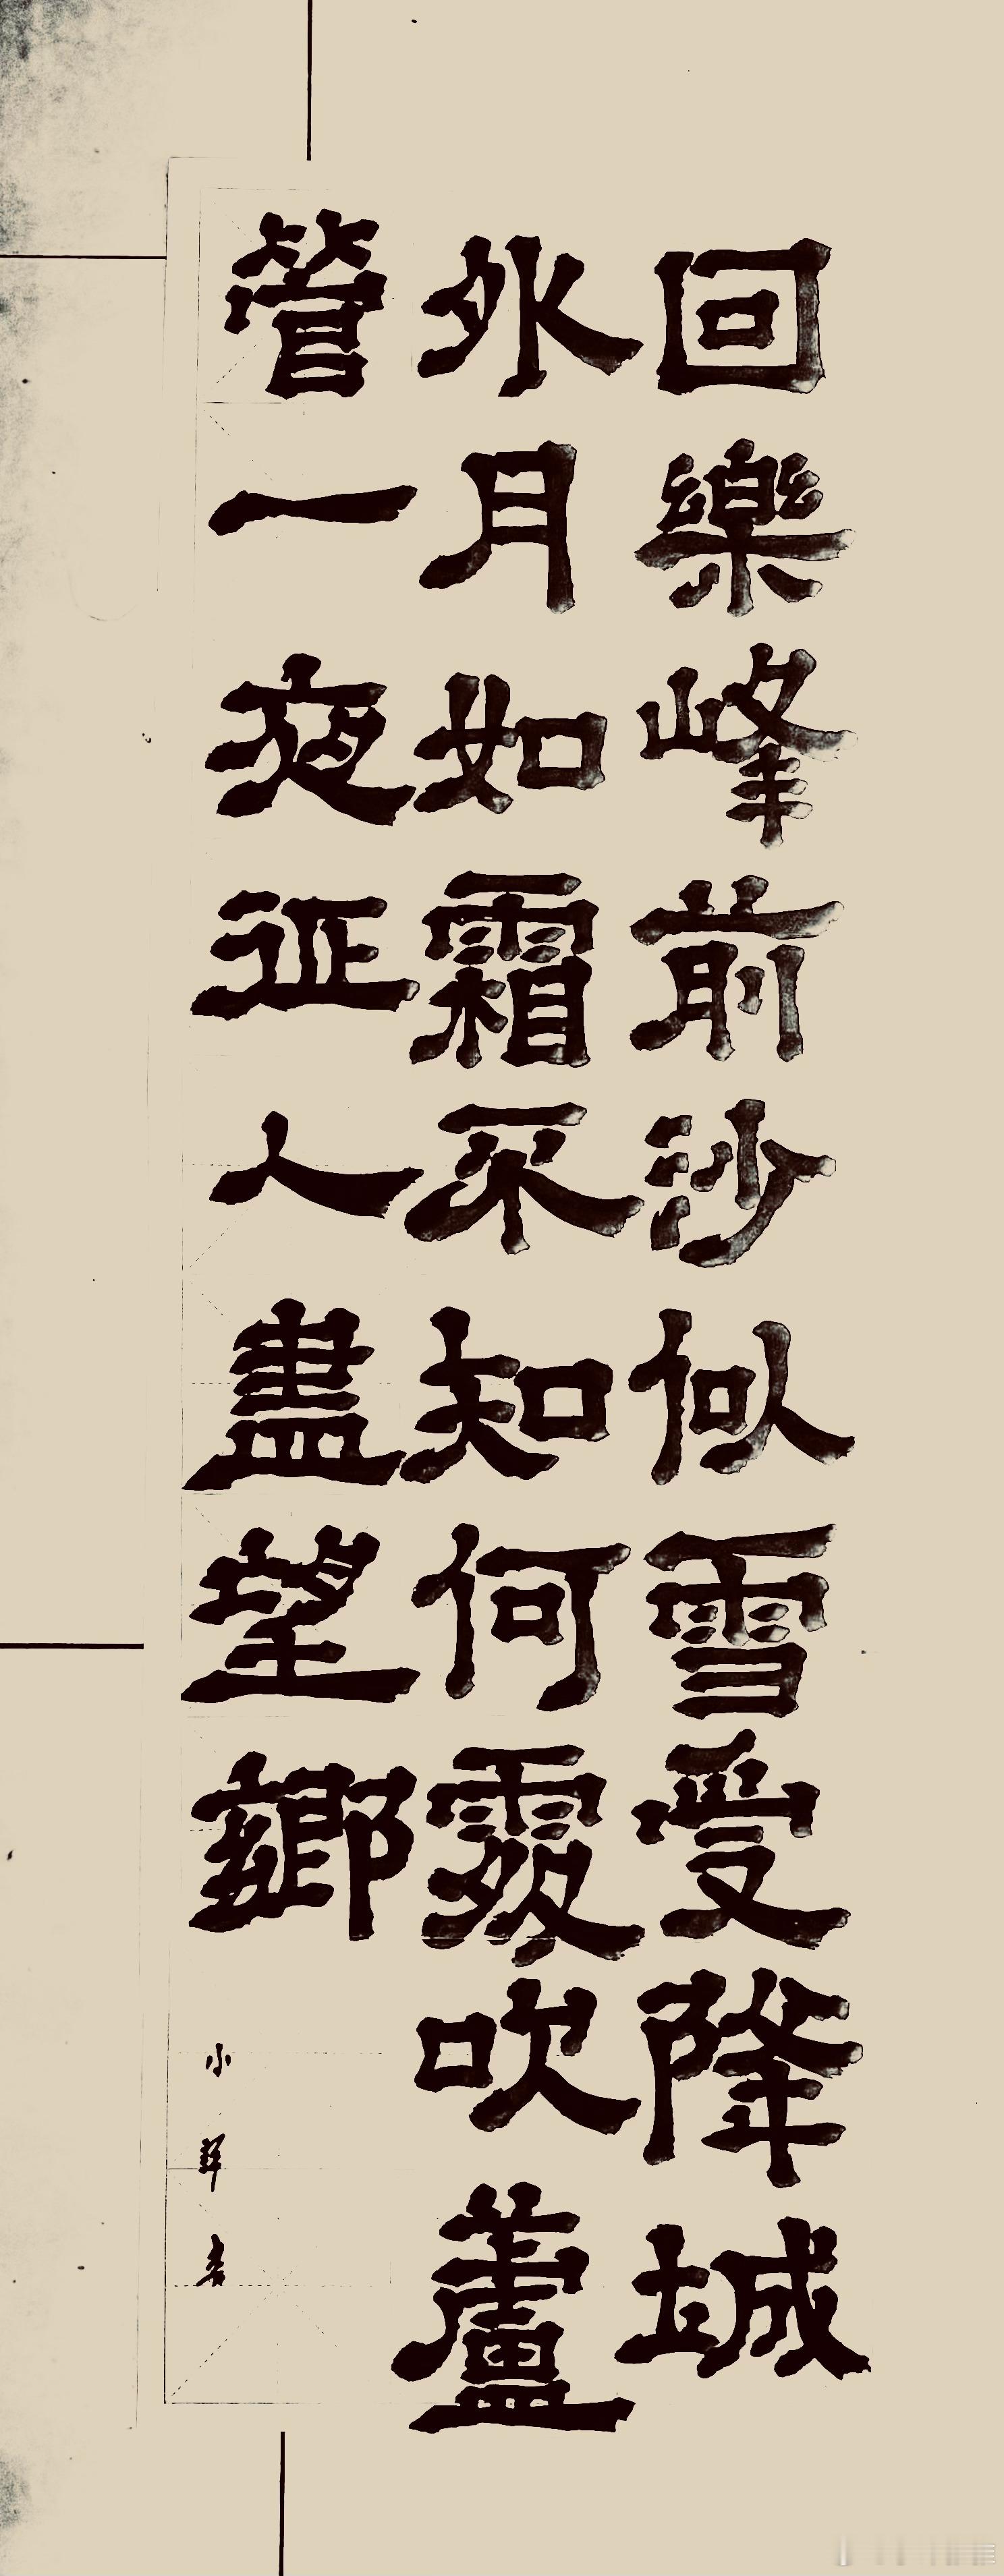 回樂峰前沙似雪受降城
外月如霜不知何處吹蘆
管一夜征人盡望鄉
小